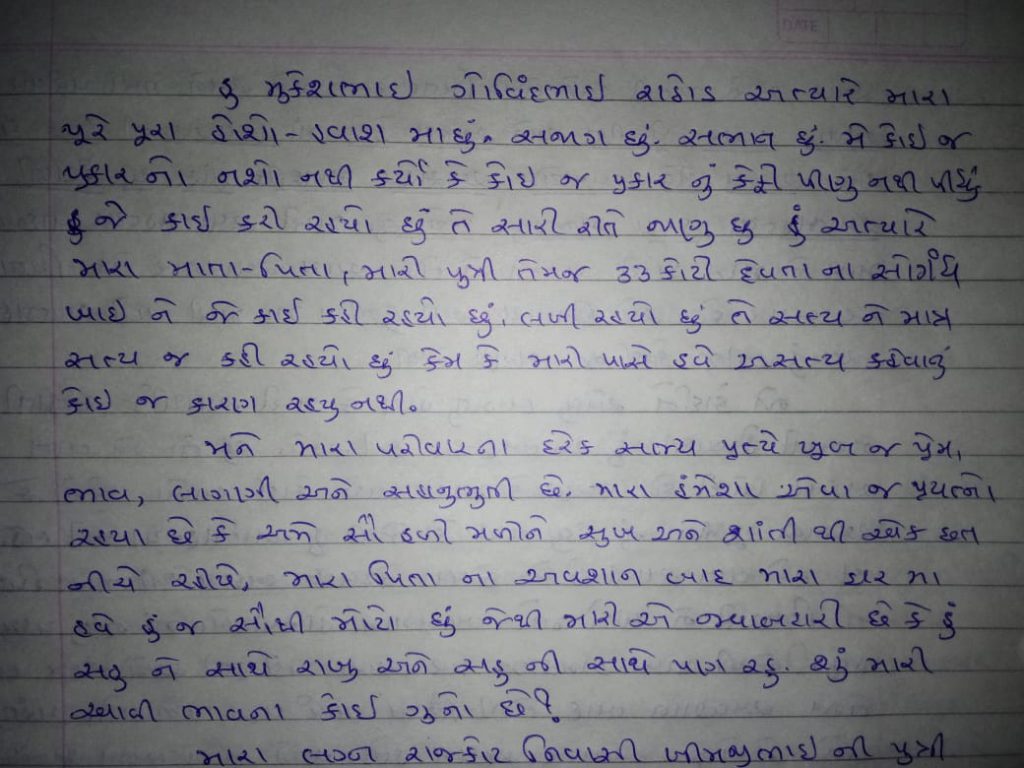 DATE
હું મુકેશભાઇ ગોવિંદભાઇ રાઠોડ અત્યારે મારા
પુરે પુરા હોશો-હવાશ મા છું. સજાગ છું. સભાન છું. મે કોઇ જ
પ્રકાર નો નશો નથી કર્યો કે કોઇ જ પ્રકાર નું કેફી પીણુ નથી પીધું
હું જે કાઇ કરી રહયો છું તે સારી રીતે જાણુ છુ હું અત્યારે
મારા માતા-પિતા, મારી પુત્રી તેમજ 33 કોટી દેવતા ના સોગંધ
ખાઇ ને જે કાઇ કહી રહયો છું, લખી રહયો છું તે સત્ય ને માત્ર
સત્ય જ કહી રહયો છું કેમ કે મારી પાસે હવે અસત્ય કહેવાનું
કોઇ જ કારણ રહયુ નથી.
મને મારા પરીવારના દરેક સભ્ય પ્રત્યે ખુબ જ પ્રેમ,
ભાવ, લાગણી અને સહાનુભુતી છે. મારા હંમેશા એવા જ પ્રયત્નો
રહયા છે કે અમે સૌ હળી મળીને સુખ અને શાંતી થી એક છત
નીચે રહીયે, મારા પિતા ના અવશાન બાદ મારા ઘર મા
હવે હું જ સૌથી મોટો છું જેથી મારી એ જવાબદારી છે કે હું
સહુ ને સાથે રાખુ અને સહુ ની સાથે પણ રહુ. શું મારી
આવી ભાવના કોઇ ગુનો છે?
મારા લગ્ન રાજકોટ નિવાસી ખીમજીભાઇ ની પુત્રી